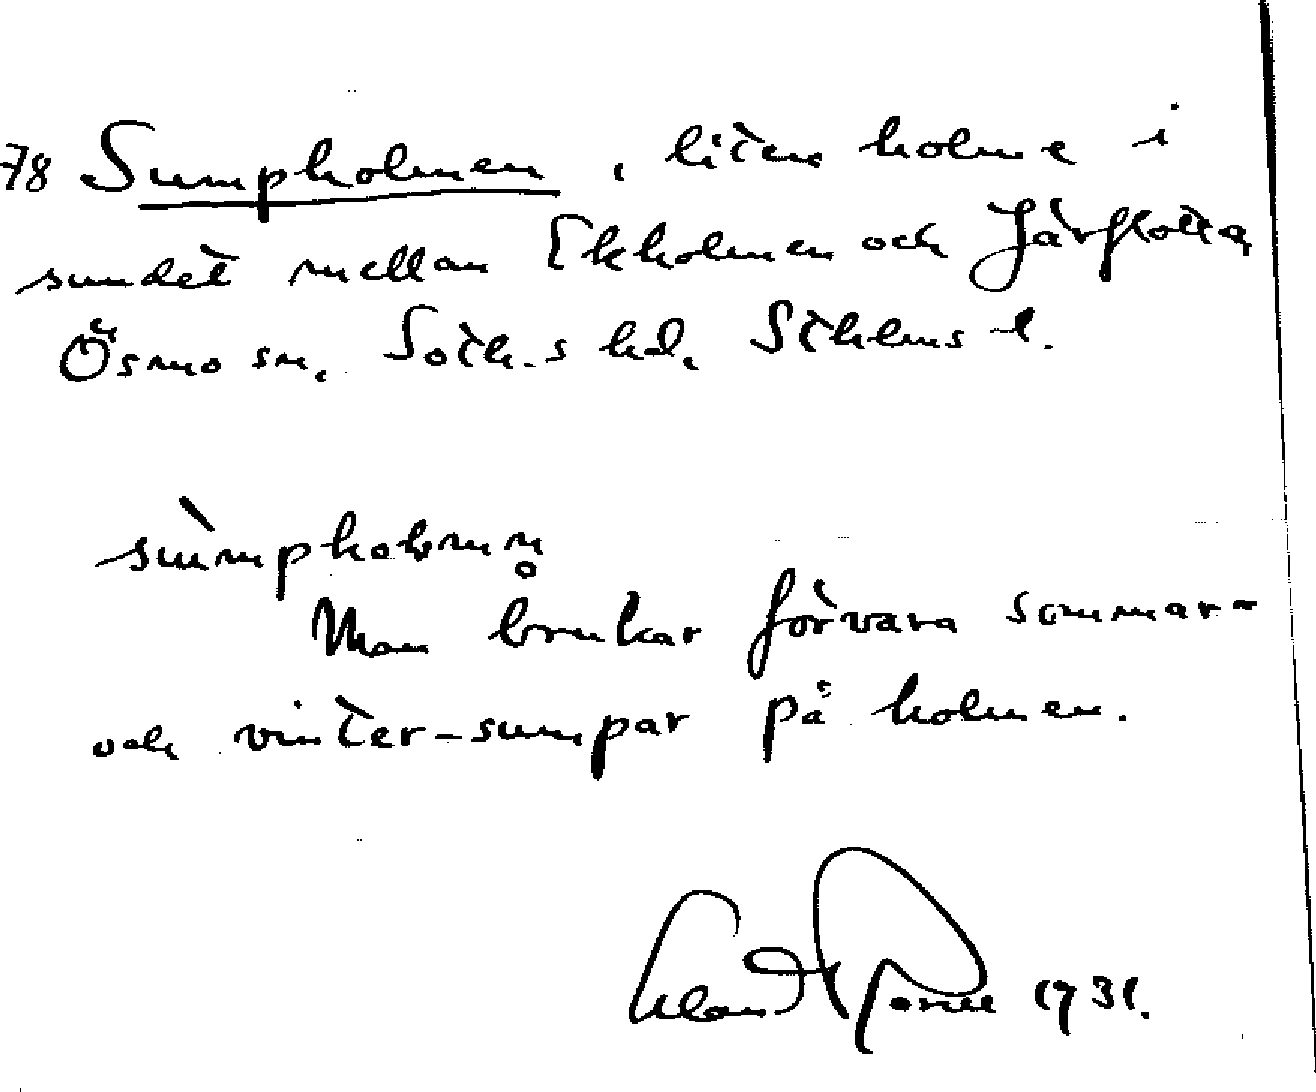 78 Sumpholmen, liten holme i
sundet mellan Ekholmen och Järflotta,
Ösmo sn. Soth.s hd. Sthlms l.
sùmpholmən̥
Man brukar förvara sommar-
och vinter-sumpar på holmen.
1931.